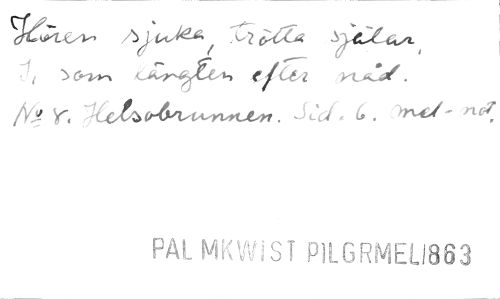 Hören sjuka, trötta själar,
I, som längten efter nåd.
No 8. Helsobrunnen. Sid. 6. mel-not.
PALMKWIST PILGRMEL1863